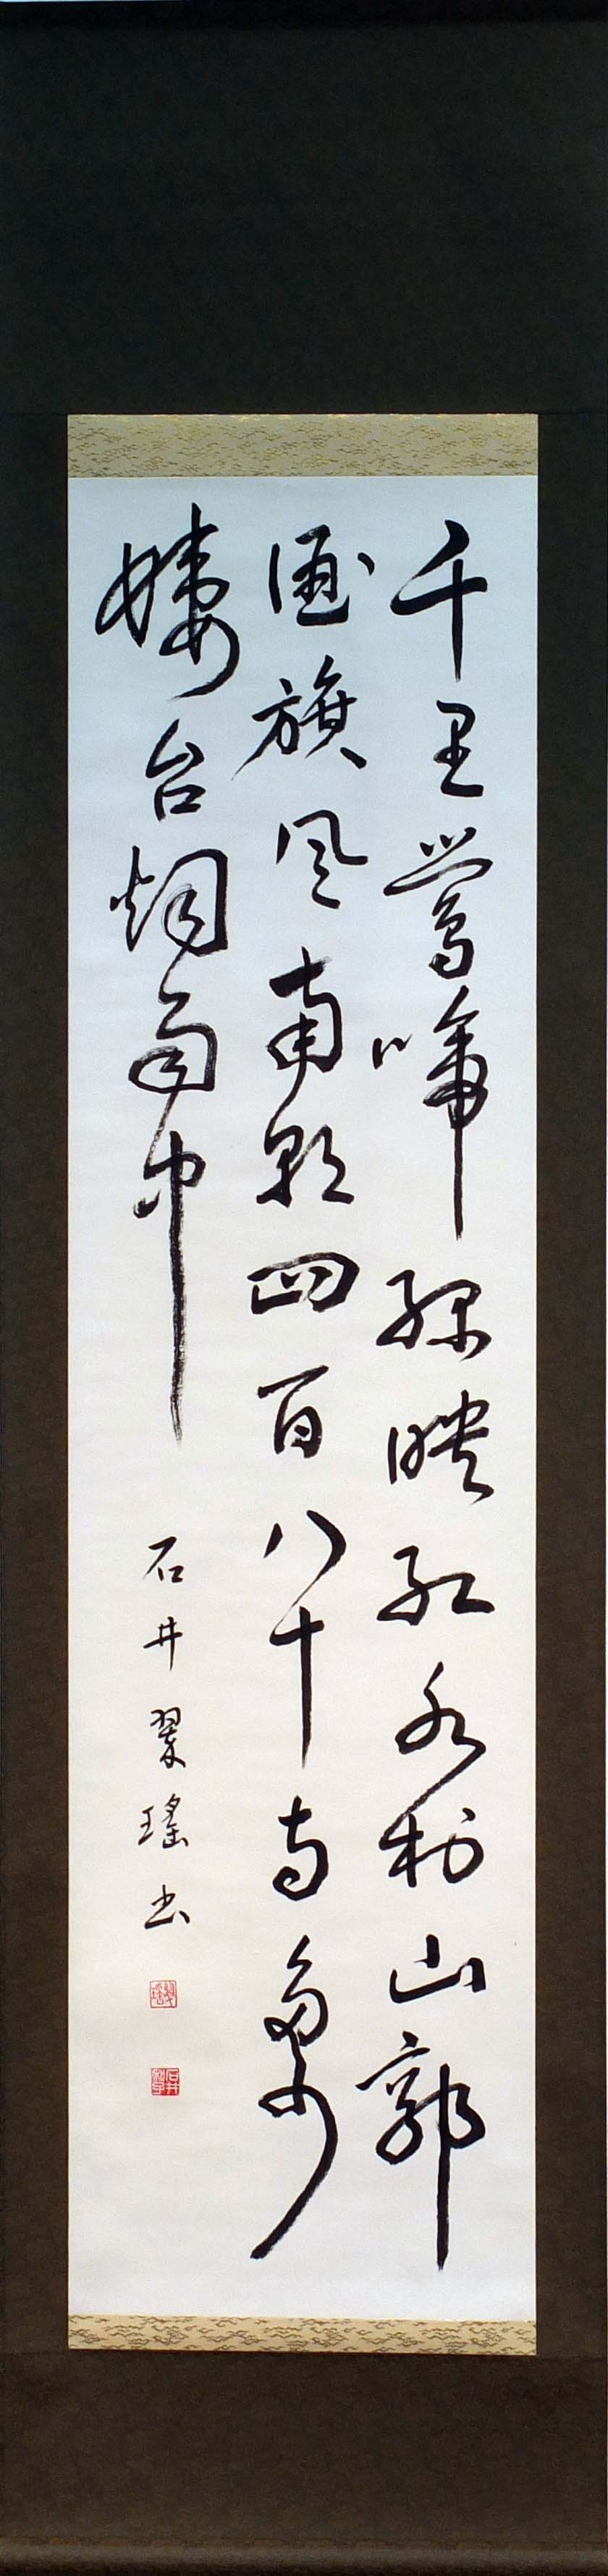 千里鶯啼緑映紅水村山郭
酒旗風南朝四百八十寺多少
楼台烟雨中
石井翠瑤書